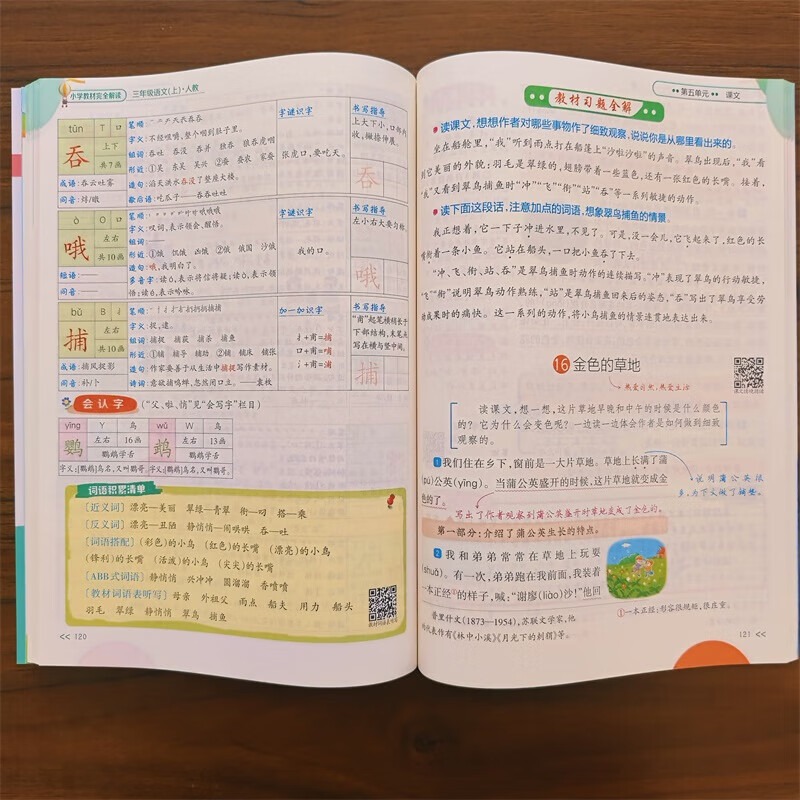 小学教材完全解读 三年级语文(上)·人教
tūn
T
口
吞
上下
共7画
成语:吞云吐雾
同音:
笔顺:
字义:不经咀嚼,整个咽到肚子里。
组词:吞吐 吞没 吞并 独吞 狼吞虎咽
形近:①吴 东吴 吴兴 ②委 委农 家委
造句:滔天洪水吞没了整座大楼。
歇后语:吃瓜子——吞吞吐吐
字谜识字
张虎口,要吃天。
书写指导
上大下小,口部内收,撇捺伸展。
吞
ò
O
口
哦
左右
共10画
短语:——
同音:——
笔顺:
字义:叹词,表示领会,醒悟。
组词:——
形近:①饿 饥饿 凶饿 ②俄 俄国 沙俄
造句:哦,我明白了。
多音字:读ó,表示将信将疑;读ò,表示领悟;读é,表示吟咏。
字谜识字
我的口。
书写指导
左小右大要匀称。
哦
bǔ
B
扌
捕
左右
共10画
成语:捕风捉影
同音:补/卜
笔顺:
字义:捉,逮。
组词:捕捉 捕获 捕杀 捕鱼
形近:①辅 辅导 辅助 ②铺 铺床 铺张
造句:作家要善于从生活中捕捉写作素材。
诗词:意欲捕鸣蝉,忽然闭口立。——袁枚
加一加识字
扌+甫=捕
口+甫=哺
氵+甫=浦
书写指导
“甫”起笔横稍长于下部结构,末笔点写在横与竖中间。
捕
会认字 (“父、啦、悄”见“会写字”栏目)
yīng Y 鸟
鹦 左右 16画
鹦鹉学舌
字义:[鹦鹉]鸟名,又叫鹦哥。
wǔ W 鸟
鹉 左右 13画
鹦鹉学舌
字义:[鹦鹉]鸟名,又叫鹦哥。
词语积累清单
[近义词] 漂亮—美丽 翠绿—青翠 衔—叼 搭—乘
[反义词] 漂亮—丑陋 静悄悄—闹哄哄 吞—吐
[词语搭配] (彩色)的小鸟 (红色)的长嘴 (漂亮)的小鸟
(锋利)的长嘴 (活泼)的小鸟 (尖尖)的长嘴
[ABB式词语] 静悄悄 兴冲冲 圆溜溜 香喷喷
[教材词语表听写] 母亲 外祖父 雨点 船夫 用力 船头
羽毛 翠绿 静悄悄 翠鸟 捕鱼
<< 120
第五单元 课文
教材习题全解
读课文,想想作者对哪些事物作了细致观察,说说你是从哪里看出来的。
坐在船舱里,“我”听到雨点打在船篷上“沙啦沙啦”的声音。翠鸟出现后,“我”看
到它美丽的外貌:羽毛是翠绿的,翅膀带着一些蓝色,还有一张红色的长嘴。接着,
“我”又看到翠鸟捕鱼时“冲”“飞”“衔”“站”“吞”等一系列敏捷的动作。
读下面这段话,注意加点的词语,想象翠鸟捕鱼的情景。
我正想着,它一下子冲进水里,不见了。可是,没一会儿,它飞起来了,红色的长
嘴衔着一条小鱼。它站在船头,一口把小鱼吞了下去。
“冲、飞、衔、站、吞”是翠鸟捕鱼时动作的连续描写。“冲”表现了翠鸟的行动敏捷,
“飞”“衔”说明翠鸟动作熟练,“站”是翠鸟捕鱼回来后的姿态,“吞”写出了翠鸟享受劳
动成果时的痛快。这一系列的动作,将小鸟捕鱼的情景连贯地表达出来。
16 金色的草地
热爱自然,热爱生活
读课文,想一想,这片草地早晚和中午的时候是什么颜色
的?它为什么会变色呢?一边读一边体会作者是如何做到细致
观察的。
1我们住在乡下,窗前是一大片草地。草地上长满了蒲
(pú)公英(yīng)。当蒲公英盛开的时候,这片草地就变成金
色的了。
说明蒲公英很
多,为下文做了铺垫。
写出了作者观察到蒲公英盛开时草地变成了金色的。
第一部分:介绍了蒲公英生长的特点。
2我和弟弟常常在草地上玩耍
(shuǎ)。有一次,弟弟跑在我前面,我装着
一本正经①的样子,喊:“谢廖(liào)沙!”他回
①一本正经:形容很规矩,很庄重。
普里什文(1873—1954),苏联文学家,他
的代表作有《林中小溪》《月光下的刺猬》等。
121 <<